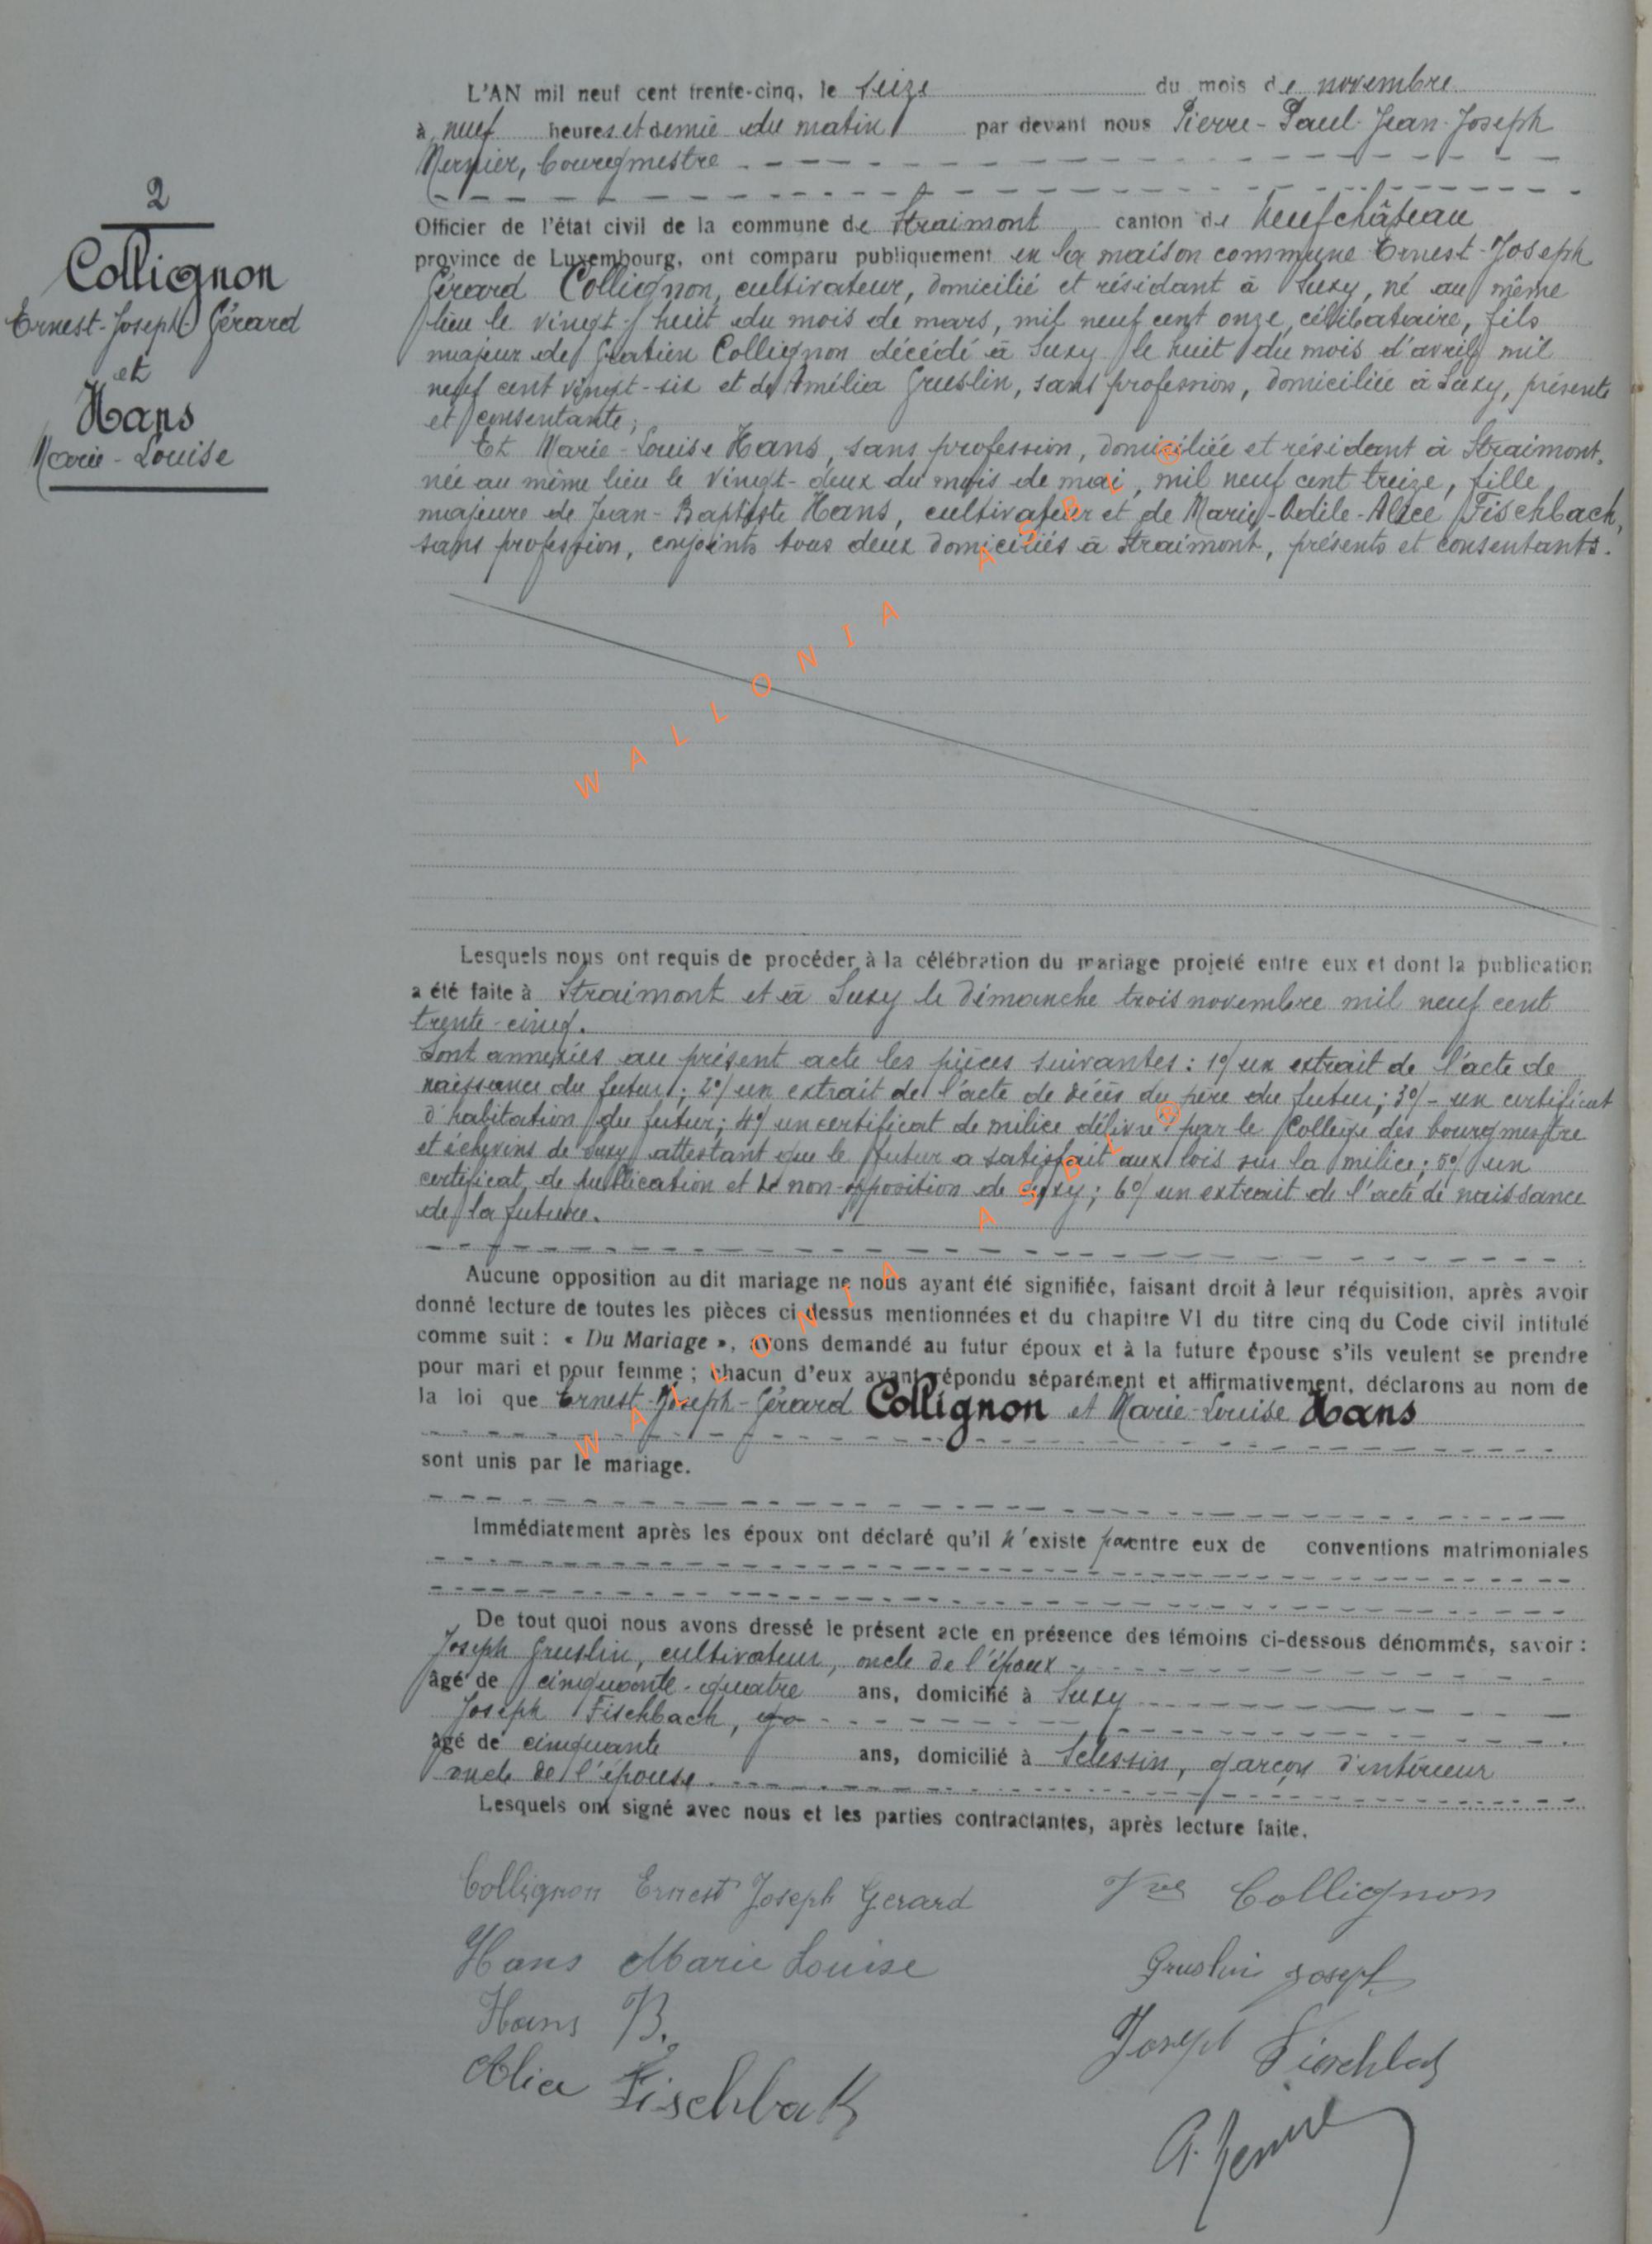 2
Collignon
Ernest-Joseph-Gérard
et
Hans
Marie-Louise
L'AN mil neuf cent trente-cinq, le seize du mois de novembre
à neuf heures et demie du matin par devant nous Pierre-Paul-Jean-Joseph
Mernier, bourgmestre
Officier de l'état civil de la commune de Straimont canton de Neufchâteau
province de Luxembourg, ont comparu publiquement en la maison commune Ernest-Joseph
Gérard Collignon, cultivateur, domicilié et résidant à Suxy, né au même
lieu le vingt-huit du mois de mars, mil neuf cent onze, célibataire, fils
majeur de Gratien Collignon décédé à Suxy le huit du mois d'avril mil
neuf cent vingt-six et de Amélia Gruslin, sans profession, domiciliée à Suxy, présente
et consentante;
Et Marie-Louise Hans, sans profession, domiciliée et résidant à Straimont,
née au même lieu le vingt-deux du mois de mai, mil neuf cent treize, fille
majeure de Jean-Baptiste Hans, cultivateur et de Marie-Odile-Alice Fischbach,
sans profession, conjoints tous deux domiciliés à Straimont, présents et consentants.
WALLONIA ASBL ®
Lesquels nous ont requis de procéder à la célébration du mariage projeté entre eux et dont la publication
a été faite à Straimont et à Suxy le dimanche trois novembre mil neuf cent
trente-cinq.
Sont annexées au présent acte les pièces suivantes : 1°/ un extrait de l'acte de
naissance du futur; 2°/ un extrait de l'acte de décès du père du futur; 3°/- un certificat
d'habitation du futur; 4°/ un certificat de milice délivré par le Collège des bourgmestre
et échevins de Suxy attestant que le futur a satisfait aux lois sur la milice; 5°/ un
certificat de publication et de non-opposition de Suxy; 6°/ un extrait de l'acte de naissance
de la future.
WALLONIA ASBL ®
Aucune opposition au dit mariage ne nous ayant été signifiée, faisant droit à leur réquisition, après avoir
donné lecture de toutes les pièces ci-dessus mentionnées et du chapitre VI du titre cinq du Code civil intitulé
comme suit : « Du Mariage », avons demandé au futur époux et à la future épouse s'ils veulent se prendre
pour mari et pour femme ; chacun d'eux ayant répondu séparément et affirmativement, déclarons au nom de
la loi que Ernest-Joseph-Gérard Collignon et Marie-Louise Hans
sont unis par le mariage.
Immédiatement après les époux ont déclaré qu'il n'existe pas entre eux de conventions matrimoniales
De tout quoi nous avons dressé le présent acte en présence des témoins ci-dessous dénommés, savoir :
Joseph Gruslin, cultivateur, oncle de l'époux
âgé de cinquante-quatre ans, domicilié à Suxy
Joseph Fischbach,
âgé de cinquante ans, domicilié à Sclessin, garçon d'intérieur
oncle de l'épouse.
Lesquels ont signé avec nous et les parties contractantes, après lecture faite.
Collignon Ernest Joseph Gerard Vve Collignon
Hans Marie Louise Gruslin Joseph
Hans B. Joseph Fischbach
Alice Fischbach